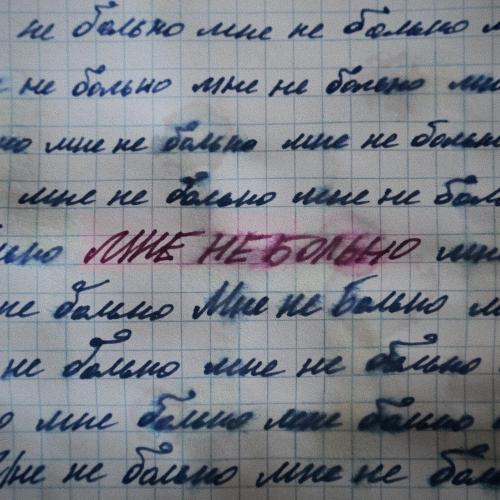 не больно мне не больно
не больно мне не больно мне
мне не больно мне не больно
мне не больно мне не больно
больно МНЕ НЕ БОЛЬНО мне
не больно Мне не Больно
не больно мне не больно
мне больно мне больно
Мне не больно мне не больно